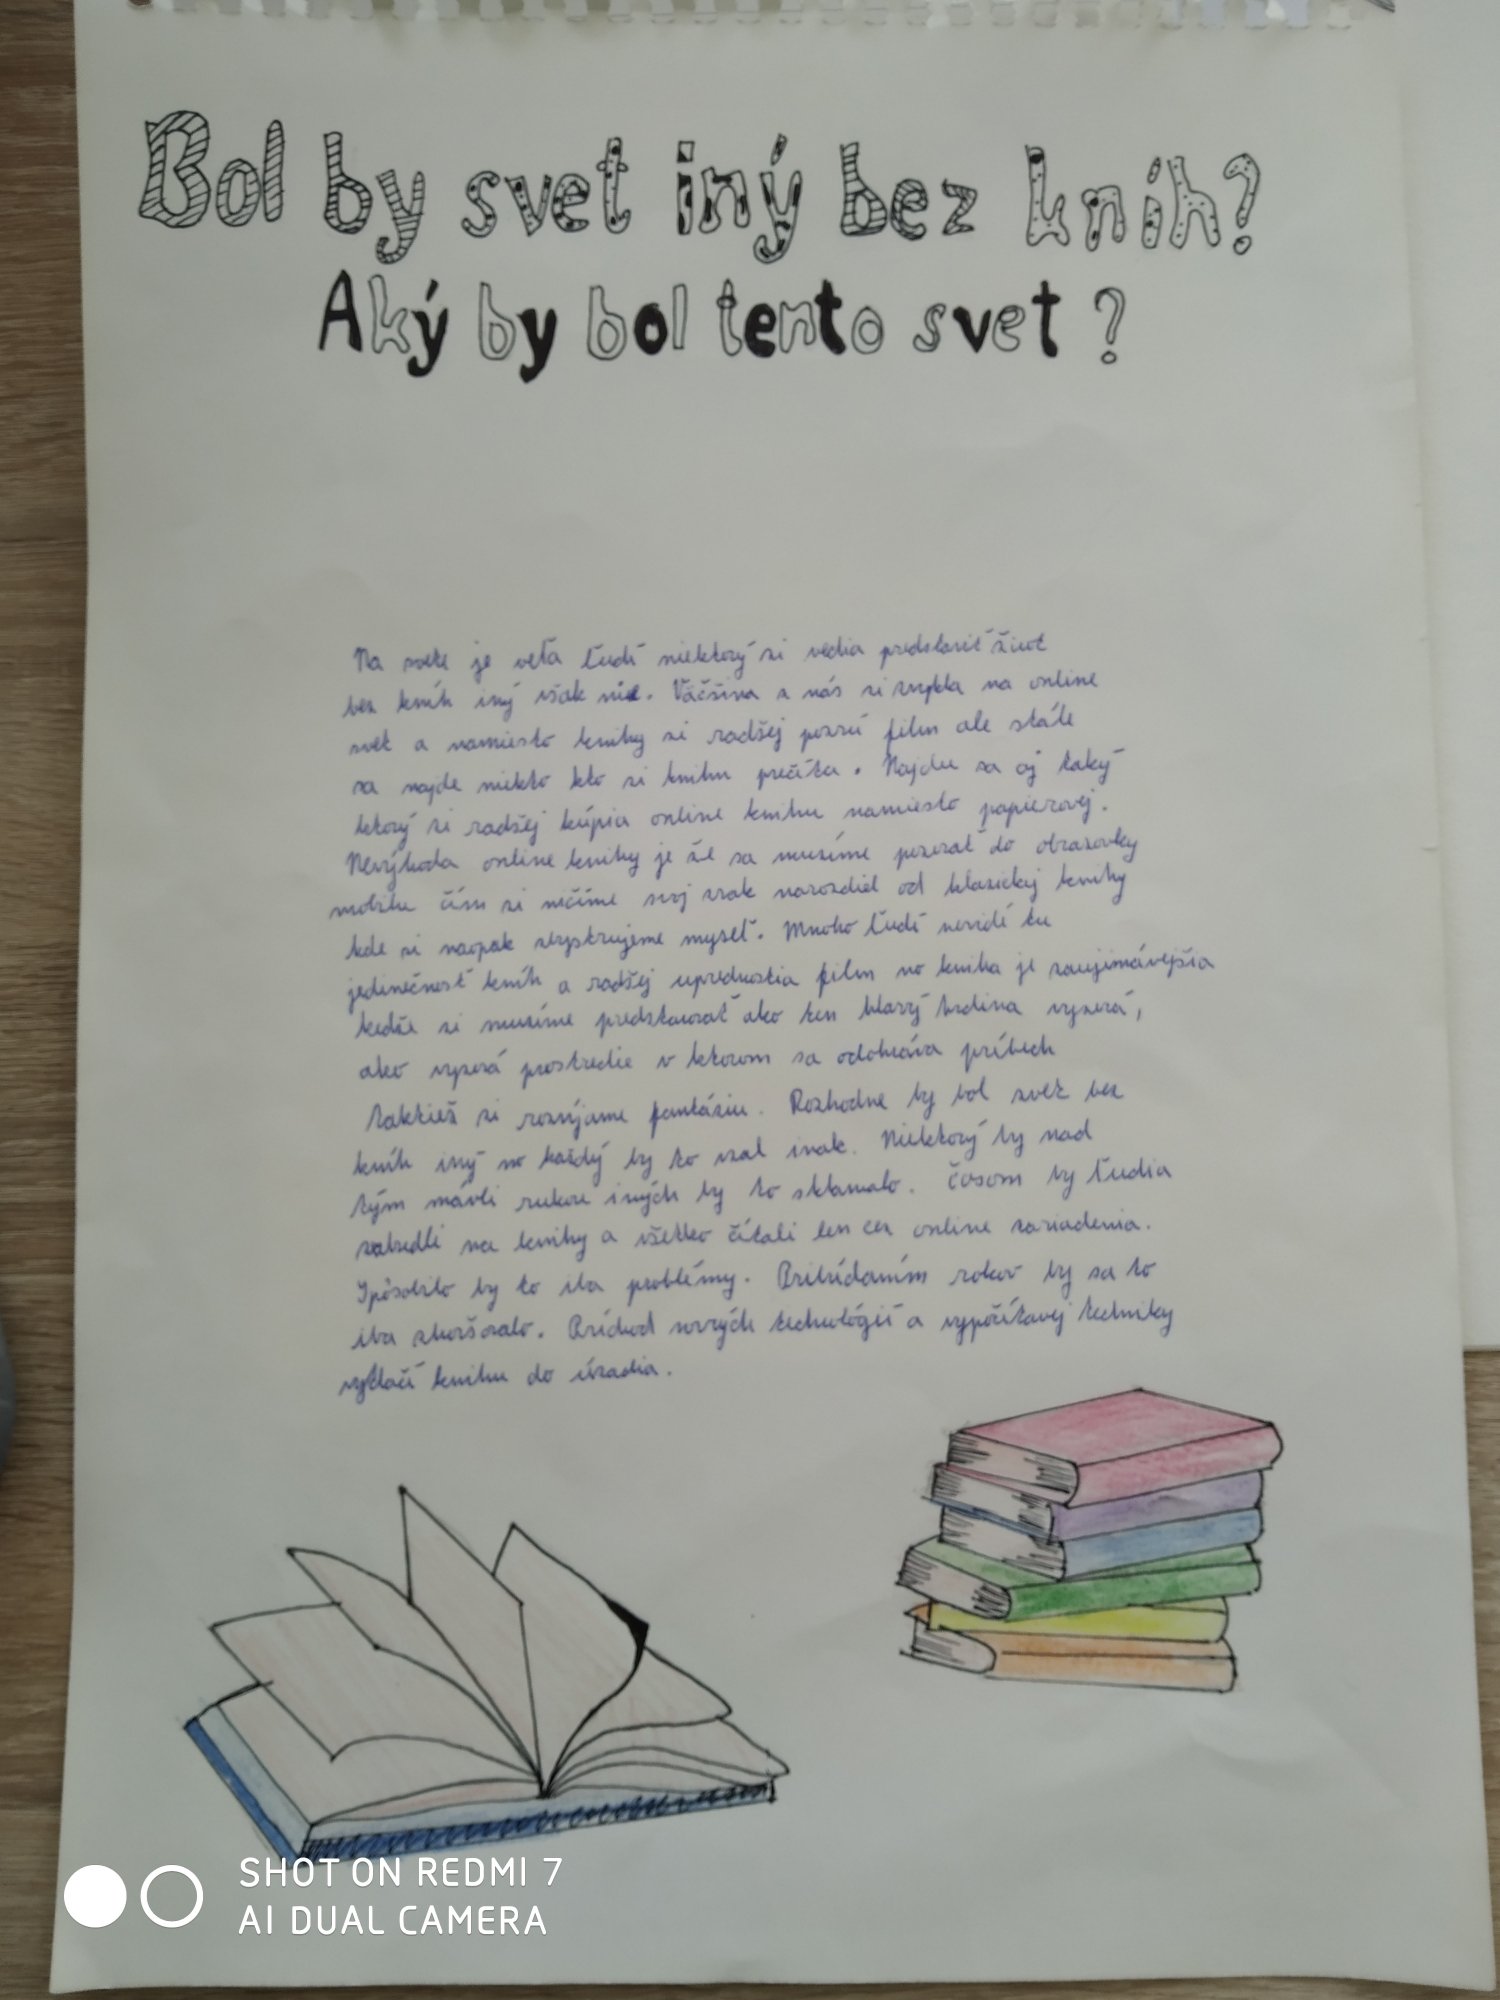 Bol by svet iný bez kníh?
Aký by bol tento svet?
Na svete je veľa ľudí niektorý si vedia predstaviť život
bez kníh iný však nie. Väčšina z nás si zvykla na online
svet a namiesto knihy si radšej pozrú film ale stále
sa nájde niekto kto si knihu prečíta. Najdu sa aj taký
ktorý si radšej kúpia online knihu namiesto papierovej.
Nevýhoda online knihy je že sa musíme pozerať do obrazovky
mobilu čím si ničíme svoj zrak narozdiel od klasickej knihy
kde si naopak myseľ. Mnoho ľudí nevidí tu
jedinečnosť kníh a radšej uprednostia film no kniha je zaujímávejšia
kedže si musíme predstavovať ako ten hlavný hrdina vyzerá,
ako vyzerá prostredie v ktorom sa odohráva príbech
taktiež si rozvíjame fantáziu. Rozhodne by bol svet bez
kníh iný no každý by to vzal inak. Niektorý by nad
tým mávli rukou iných by to sklamalo. Časom by ľudia
zabudli na knihy a všetko čítali len cez online zariadenia.
Spôsobilo by to iba problémy. Pribúdaním rokov by sa to
iba zhoršovalo. Príchod nových technológií a vypočítavej techniky
vytlačí knihu do úzadia.
SHOT ON REDMI 7
AI DUAL CAMERA